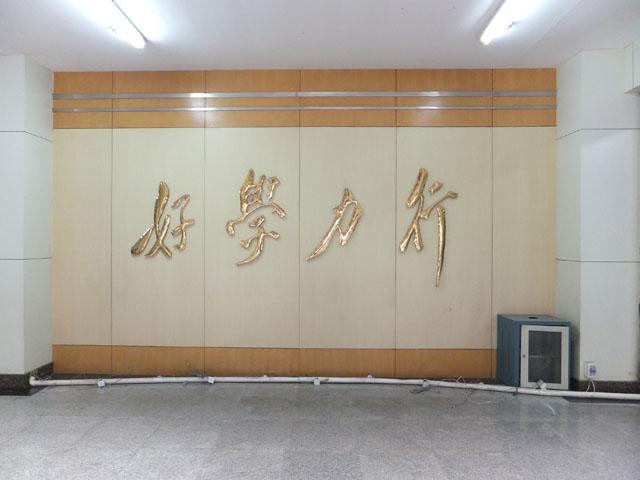 好學力行